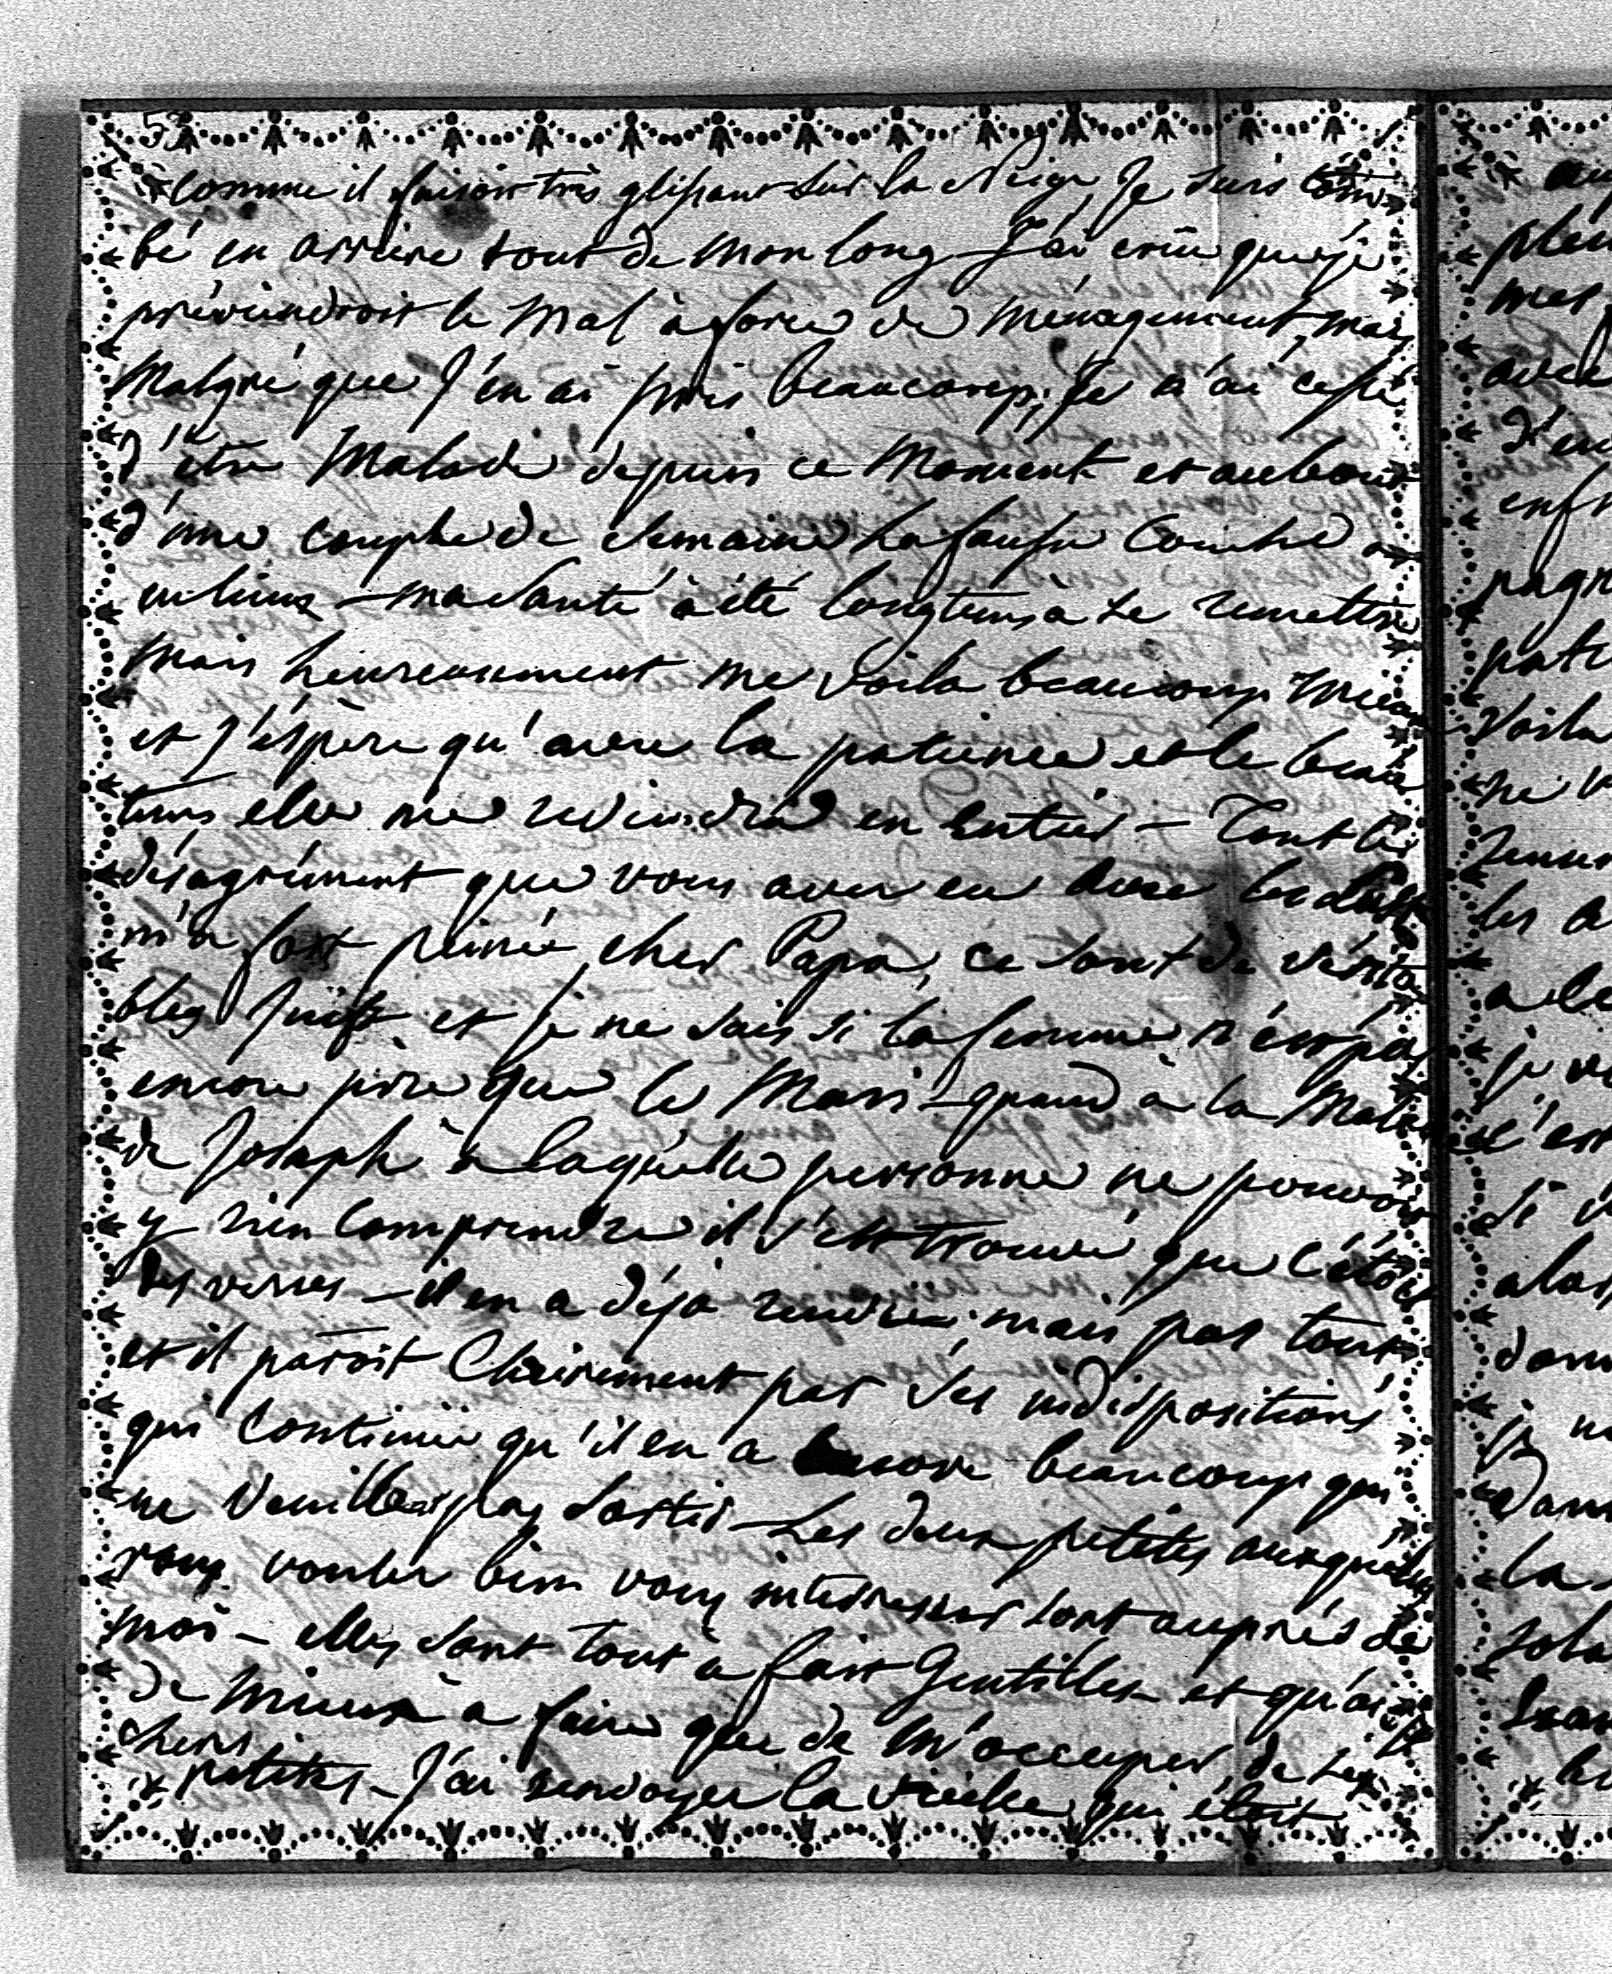 53
comme il faisoit très glissant sur la Neige, Je suis tom
bé en arrière tout de mon long J'ai crüe que je
préviendroit le Mal à force de Ménagement, mais
Malgré que J'en ai pris beaucoup, Je n'ai cessé
d'être Malade depuis ce Moment et au bout
d'une couple de Semaine La fausse Couche a
eu lieux – ma Santé à été longtems à Se remettre
Mais heureusement me voila beaucoup Mieux
et J'éspère qu'avec la patience et le beau
tems elle me reviendra en Entier – Tout le
désagrément que vous avez eu avec les
m'a fort peinée cher Papa, ce sont de vérita
bles Juifs et je ne sais si la femme n'est pas
encore pire que le Mari – quand à la Maladie
de Joseph à laquelle personne ne pouvoit
y rien Comprendre il s'est trouvé que c'étoit
des verres – il en a déjà rendue, mais pas tout
et il paroit Clairement par Ses indispositions
qui Continüe qu'il en a Encore beaucoup qui
ne Veuillent pas Sortir – Les deux petites auxquelles
vous voulez bien vous intéresser sont auprès de
moi – elles sont tout à fait Gentilles – et qu'ai je
de Mieux à faire que de m'occuper de Ses
chers
petites – J'ai renvoyer la vieille qui étoit
au
pleu
mes
avec
d'en
enfr
pagn
pati
Voila
ne v
les a
a le
je v
c'est
Si v
alor
donn
je n
Dans
la